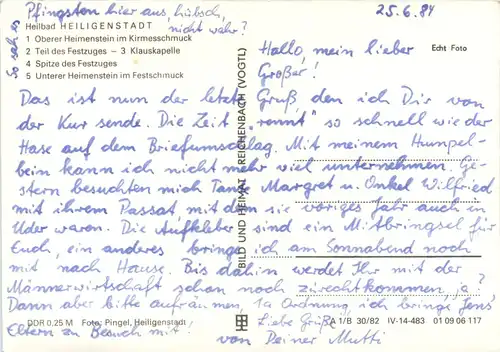 So sah es
Pfingsten hier aus, hübsch,
nicht wahr?
25.6.84
Heilbad HEILIGENSTADT
1 Oberer Heimenstein im Kirmesschmuck
2 Teil des Festzuges – 3 Klauskapelle
4 Spitze des Festzuges
5 Unterer Heimenstein im Festschmuck
Echt Foto
Hallo, mein lieber
Großer!
Das ist nun der letzte Gruß, den ich Dir von
der Kur sende. Die Zeit "rennt" so schnell wie der
Hase auf dem Briefumschlag. Mit meinem Humpel-
bein kann ich nicht mehr viel unternehmen. Ge-
stern besuchten mich Tante Margret u. Onkel Wilfried
mit ihrem Passat, mit dem sie voriges Jahr auch in
Uder waren. Die Aufkleber sind ein Mitbringsel für
Euch, ein anderes bringe ich am Sonnabend noch
mit nach Hause. Bis dahin werdet Ihr mit der
Männerwirtschaft schon noch zurechtkommen, ja?
Dann aber bitte aufräumen, 1a Ordnung, ich bringe Jens
Eltern zu Besuch mit!
Liebe Grüße
von Deiner Mutti
BILD UND HEIMAT REICHENBACH (VOGTL)
DDR 0,25 M Foto: Pingel, Heiligenstadt
A 1/B 30/82 IV-14-483 01 09 06 117